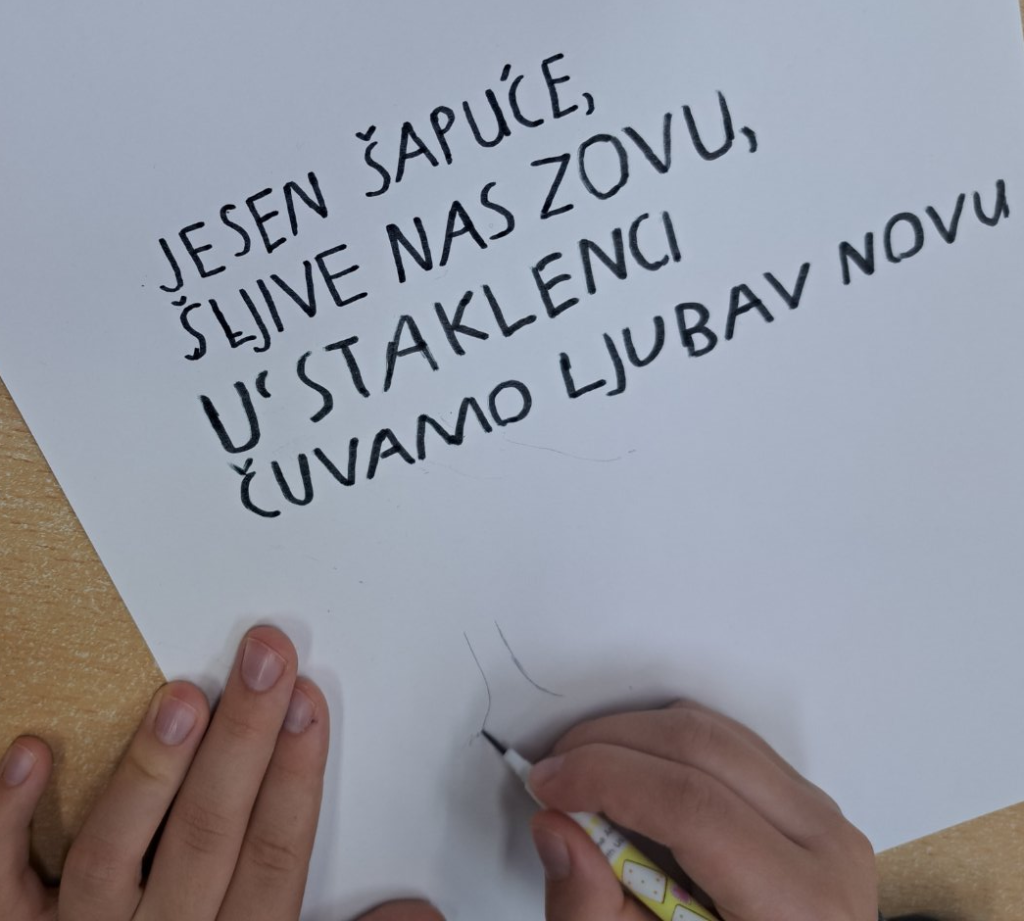 JESEN ŠAPUĆE,
ŠLJIVE NAS ZOVU,
U' STAKLENCI
ČUVAMO LJUBAV NOVU